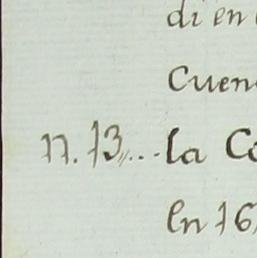 di en
Cuen
n. 13,,... la Co
En 16